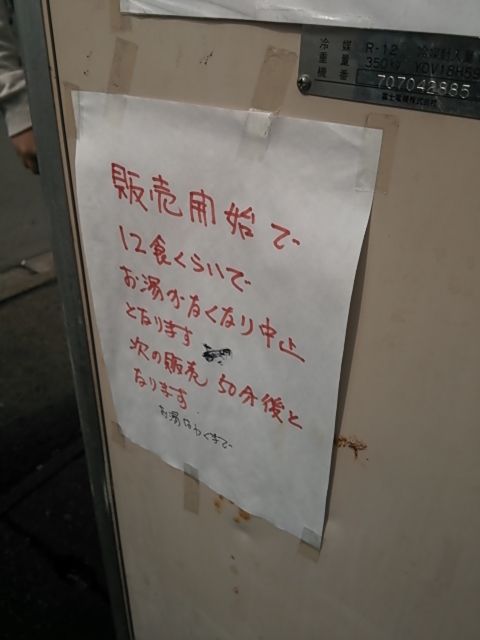 冷媒 R-12 冷媒封入量
重量 350kg YDV18H59
機番 707042885
富士電機株式会社
販売開始で
12食くらいで
お湯がなくなり中止
となります
次の販売 50分後と
なります
お湯はわくまで